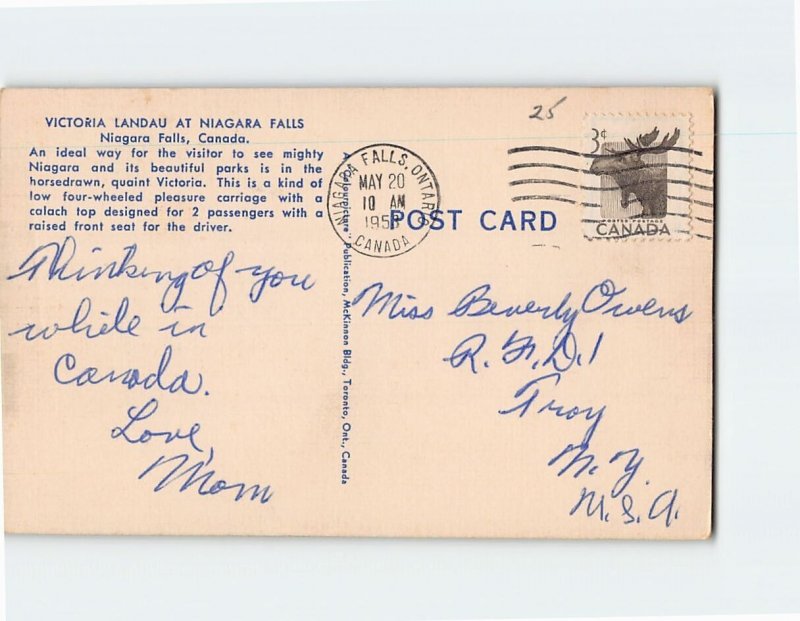 25
VICTORIA LANDAU AT NIAGARA FALLS
Niagara Falls, Canada.
An ideal way for the visitor to see mighty
Niagara and its beautiful parks is in the
horsedrawn, quaint Victoria. This is a kind of
low four-wheeled pleasure carriage with a
calach top designed for 2 passengers with a
raised front seat for the driver.
Thinking of you
while in
Canada.
Love,
Mom
A Colourpicture Publication, McKinnon Bldg., Toronto, Ont., Canada
NIAGARA FALLS, ONTARIO
MAY 20
10 AM
CANADA
3¢
POSTES POSTAGE
CANADA
POST CARD
Miss Beverly Owens
R.F.D.1
Troy
N.Y.
U.S.A.